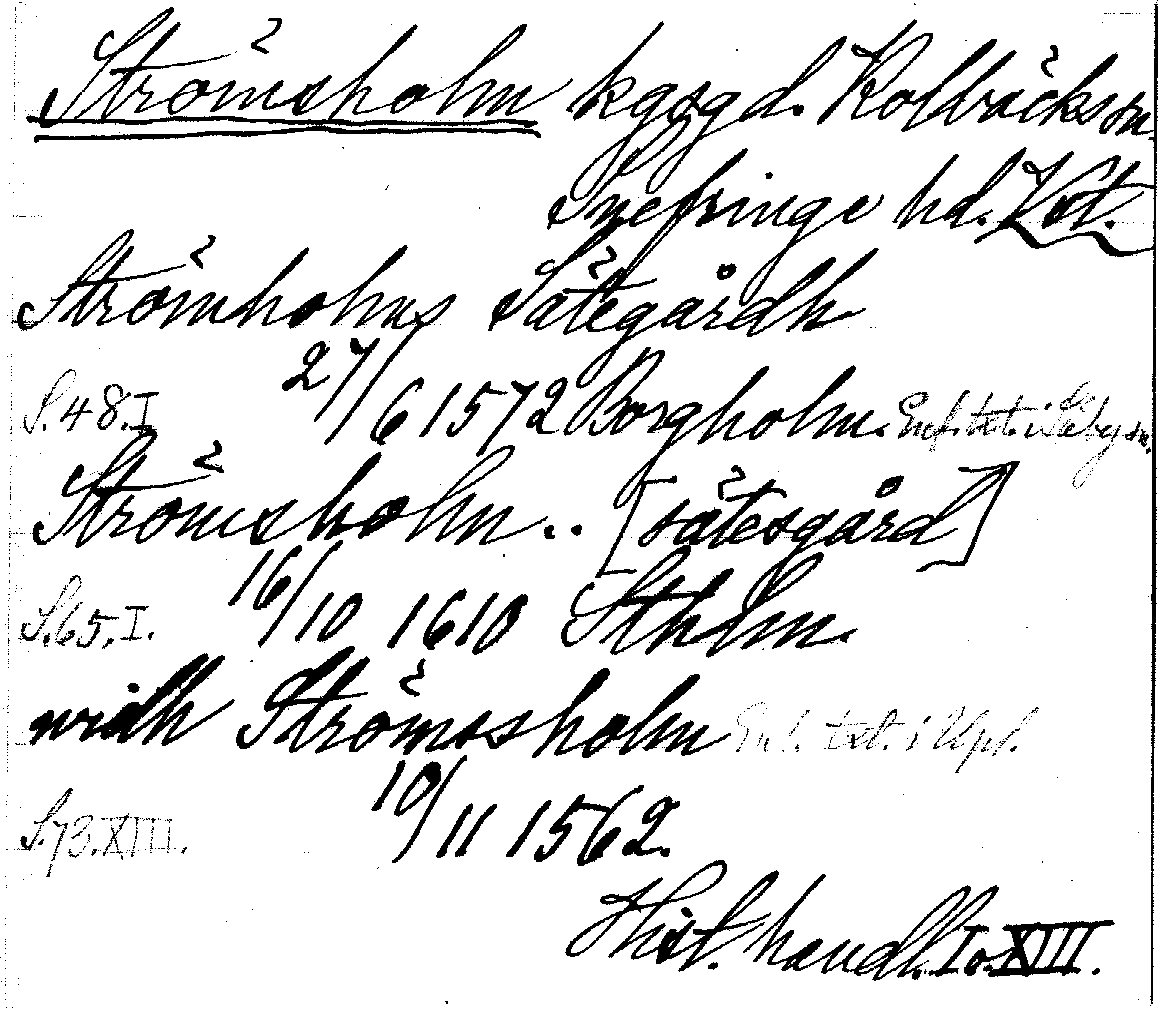 Strömsholm kgsgd. Kolbäcks sn.
Snefringe hd. Vst.
Strömholms Sätegårdh
S.48.I 27/6 1572 Borgholm. Enl. txt. i Säby sn.
Strömsholm .. [sätesgård]
S.65.I. 16/10 1610 Sthlm.
widh Strömssholm Enl. txt. i Upl.
S.73.XIII. 10/11 1562.
Hist. handl. I o. XIII.